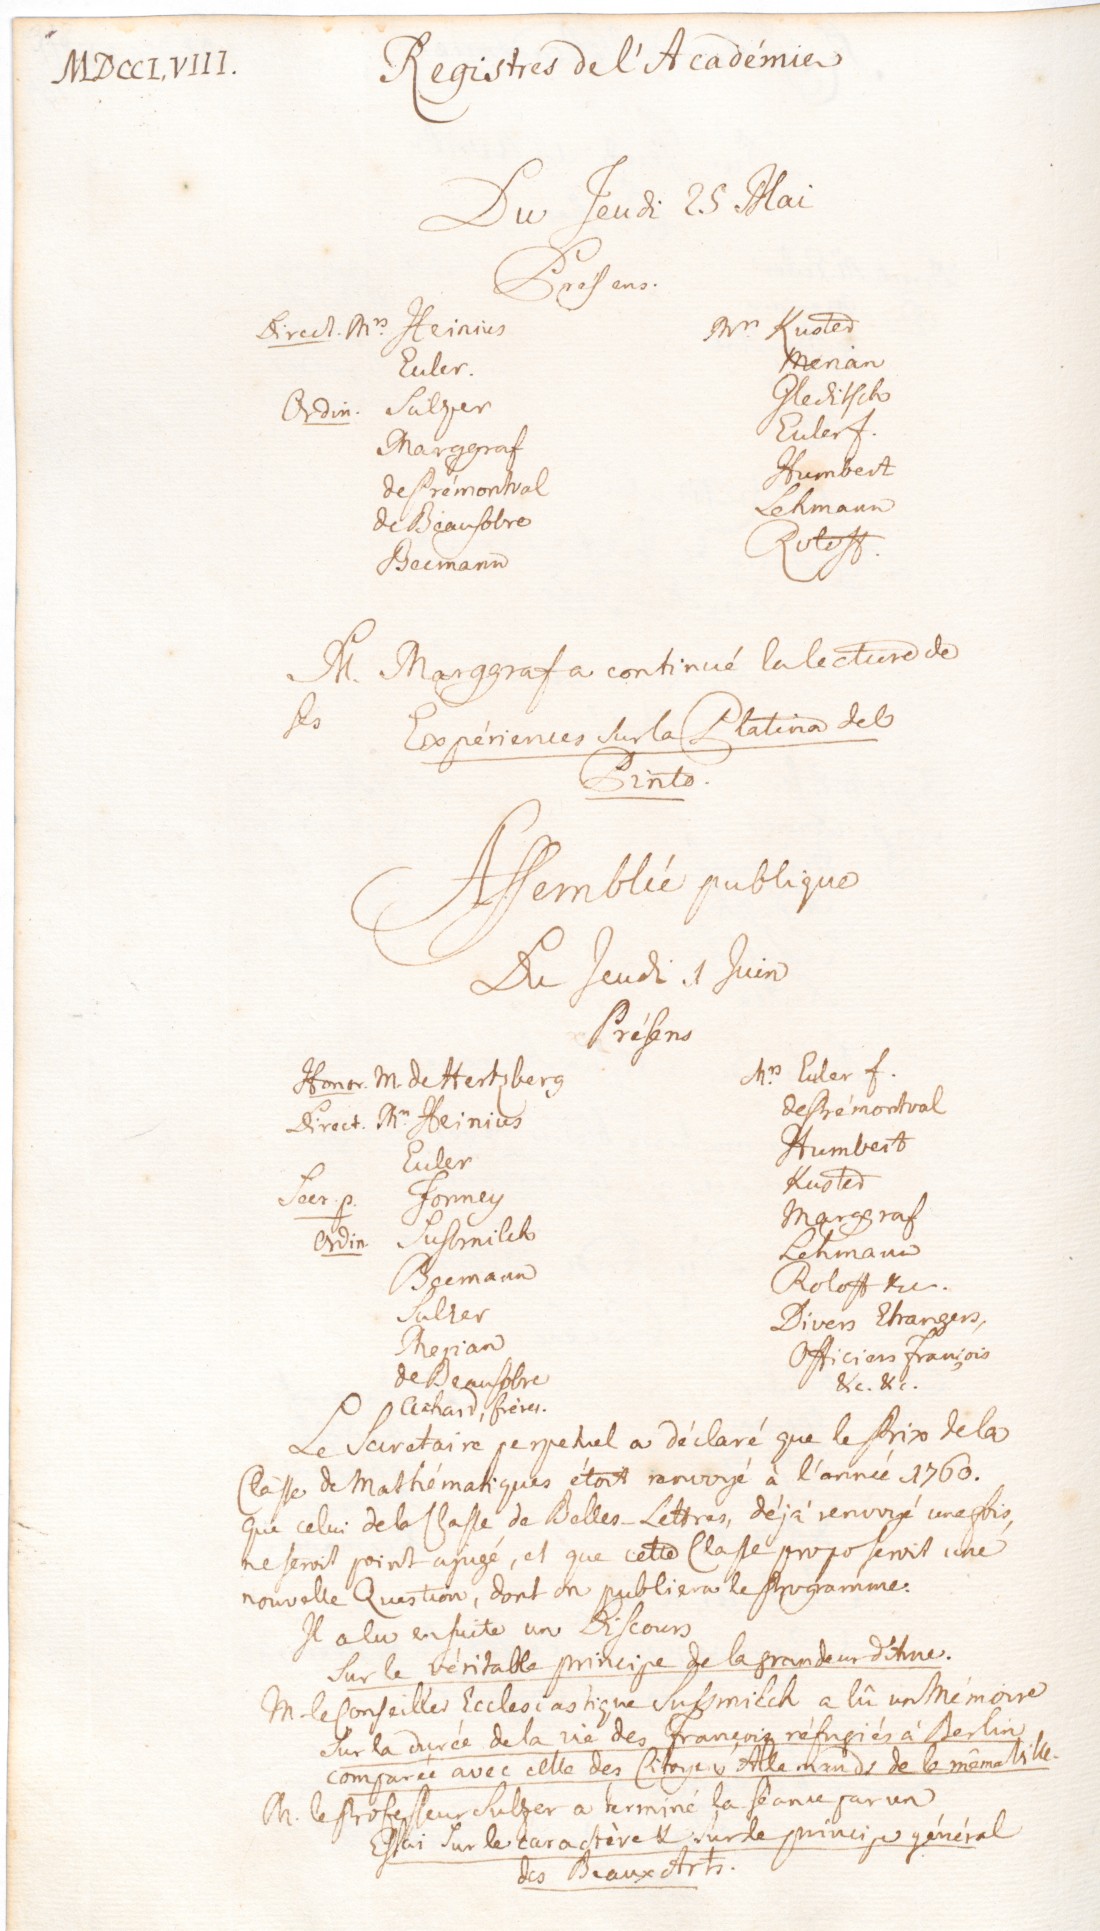 MDCCLVIII.
Registres de l'Académie
Du Jeudi 25 Mai
Présens.
Direct. Mrs Heinius
Euler.
Ordin. Sulzer
Marggraf
de Prémontval
de Beausobre
Becmann
Mrs Kuster
Merian
Gleditsch
Euler f.
Humbert
Lehmann
Roloff.
M. Marggraf a continué la lecture de
ses Expériences sur la Platina del
Pinto.
Assemblée publique
Du Jeudi 1 Juin
Présens
Honor. M. de Hertzberg
Direct. Mrs Heinius
Euler
Secr. p. Formey
Ordin Susmilch
Becmann
Sulzer
Merian
de Beausobre
Achard, frères.
Mrs Euler f.
de Prémontval
Humbert
Kuster
Marggraf
Lehmann
Roloff &c.
Divers Etrangers,
Officiers François
&c. &c.
Le Secretaire perpetuel a déclaré que le Prix de la
Classe de Mathématiques étoit renvoyé à l'année 1760.
que celui de la Classe de Belles-Lettres, déjà renvoyé une fois,
ne seroit point ajugé, et que cette Classe proposeroit une
nouvelle Question, dont on publiera le Programme.
Il a lu ensuite un Discours
Sur le véritable principe de la grandeur d'Ame.
M. le Conseiller Ecclesiastique Susmilch a lû un Mémoire
Sur la durée de la vie des François réfugiés à Berlin
comparée avec celle des Citoyens Allemands de la même Ville.
M. le Professeur Sulzer a terminé la séance par un
Essai sur le caractère & sur le principe général
des Beaux Arts.